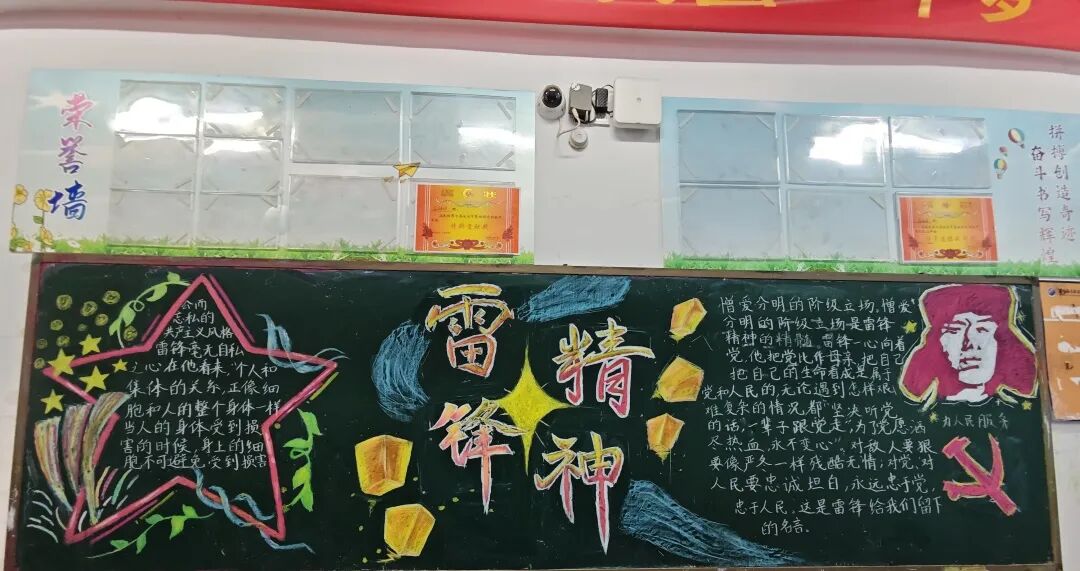 荣誉墙
拼搏创造奇迹
奋斗书写辉煌
特殊贡献奖
公而
忘私的
共产主义风格
雷锋毫无自私
之心在他看来,个人和
集体的关系,正像细
胞和人的整个身体一样
当人的身体受到损
害的时候,身上的细
胞不可避免受到损害
雷锋
精神
憎爱分明的阶级立场,憎爱
分明的阶级立场是雷锋
精神的精髓,雷锋一心向着
党,他把党比作母亲,把自己
把自己的生命看成是属于
党和人民的,无论遇到怎样艰
难复杂的情况,都"坚决听党
的话,一辈子跟党走","为了党愿洒
尽热血,永不变心"。对敌人要狠
要像严冬一样残酷无情;对党,对
人民要忠诚坦白,永远忠于党,
忠于人民。这是雷锋给我们留下
的名言。
为人民服务